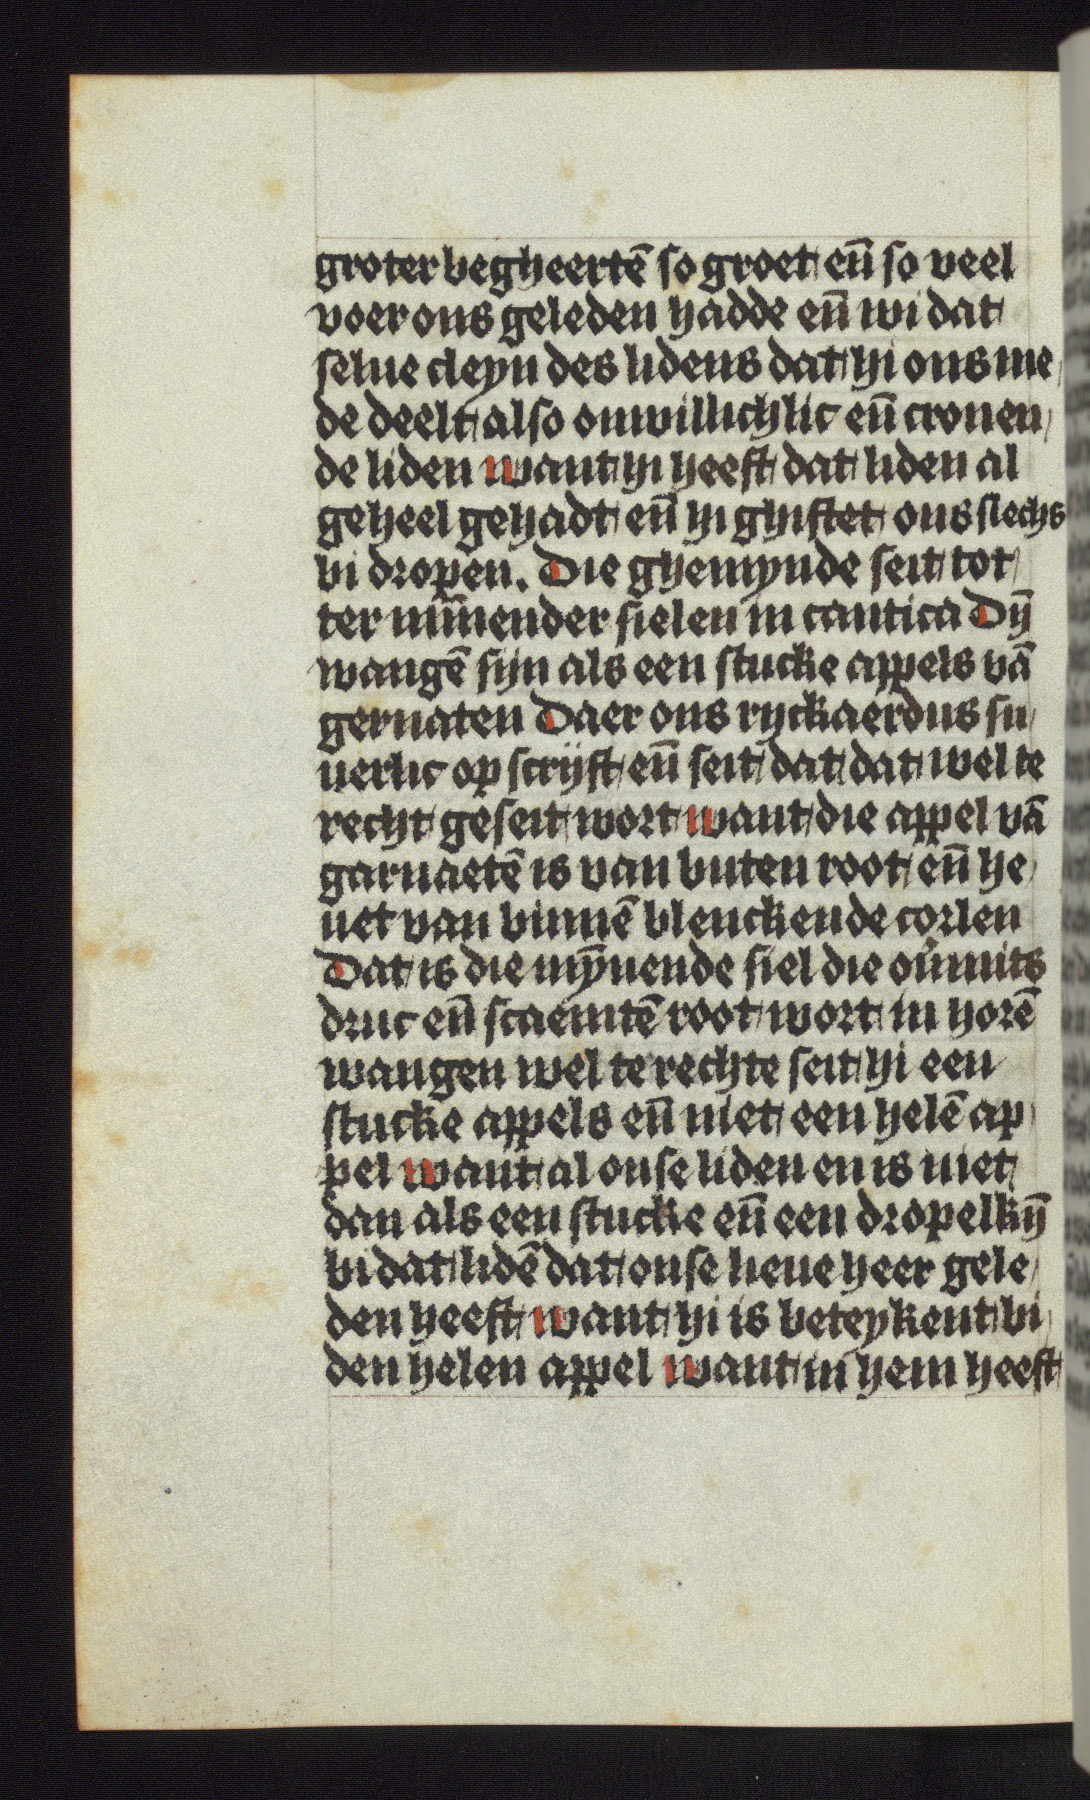 groter begheertē so groet en̄ so veel
voer ons geleden hadde en̄ wi dat
selue cleyn des lidens dat hi ons me
de deelt also onwillichlic en̄ cronen
de liden want hi heeft dat liden al
geheel gehadt en̄ hi ghiftet ons slechs
bi dropen. Die ghemynde seit tot
ter mīnender sielen in cantica Dȳ
wangē sijn als een stucke appels vā
gernaten Daer ons ryckaerdus su
uerlic op scrijft en̄ seit dat dat wel te
recht geseit wort want die appel vā
garnaetē is van buten root en̄ he
uet van binnē blenckende corlen
Dat is die mȳnende siel die ou̾mits
druc en̄ scaemtē root wort in horē
wangen wel te rechte seit hi een
stucke appels en̄ niet een helē ap
pel want al onse liden en is niet
dan als een stucke en̄ een dropelkȳ
bi dat lidē dat onse lieue heer gele
den heeft want hi is beteykent bi
den helen appel want in hem heeft